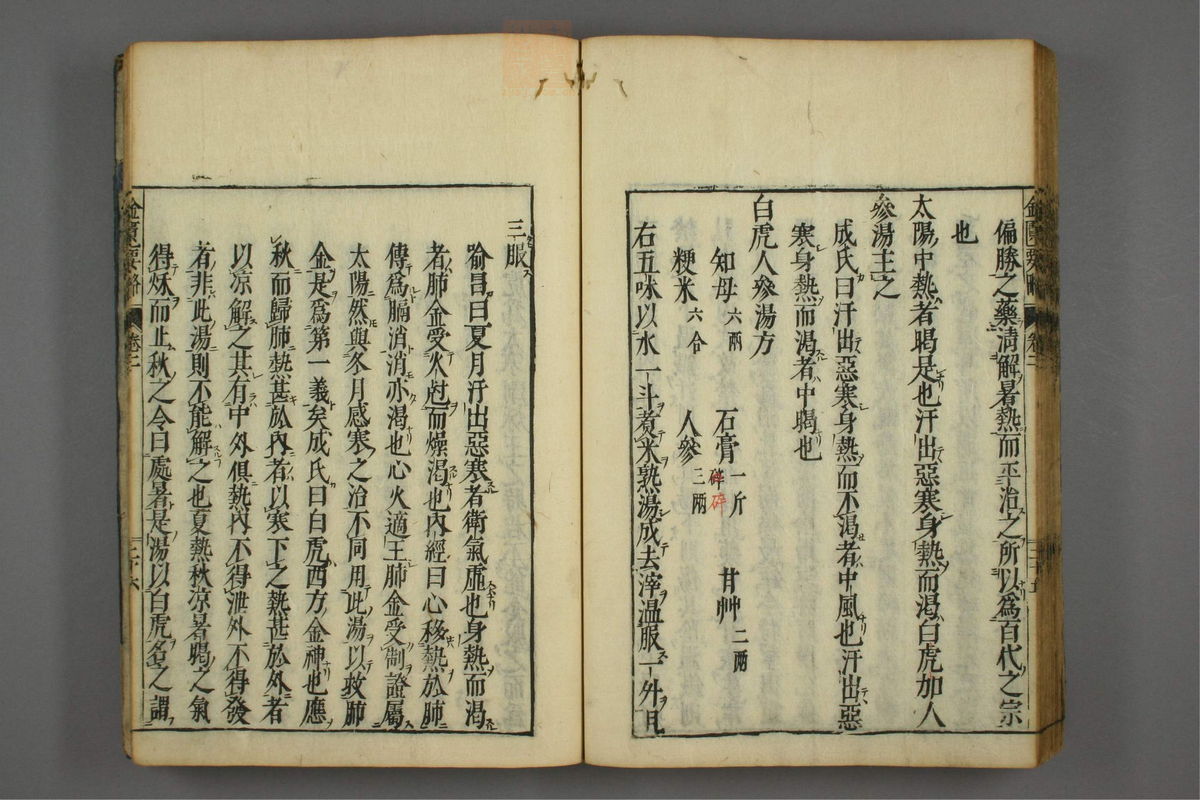 偏勝之藥清解暑熱而平治之所以為百代之宗
也
太陽中熱者暍是也汗出惡寒身熱而渴白虎加人
參湯主之
成氏曰汗出惡寒身熱而不渴者中風也汗出惡
寒身熱而渴者中暍也
白虎人參湯方
知母六兩 石膏一斤碎 甘艸二兩
粳米六合 人參三兩
右五味以水一斗煑米熟湯成去滓溫服一升日
三服
喻昌曰夏月汗出惡寒者衛氣虛也身熱而渴
者肺金受火尅而燥渴也內經曰心移熱於肺
傳為膈消消亦渴也心火適王肺金受制證屬
太陽然與冬月感寒之治不同用此湯以救肺
金是為第一義矣成氏曰白虎西方金神也應
秋而歸肺熱甚於內者以寒下之熱甚於外者
以涼解之其有中外俱熱內不得泄外不得發
者非此湯則不能解之也夏熱秋涼暑暍之氣
得秋而止秋之令曰處暑是湯以白虎名之謂
金匱要略 卷二 二十六